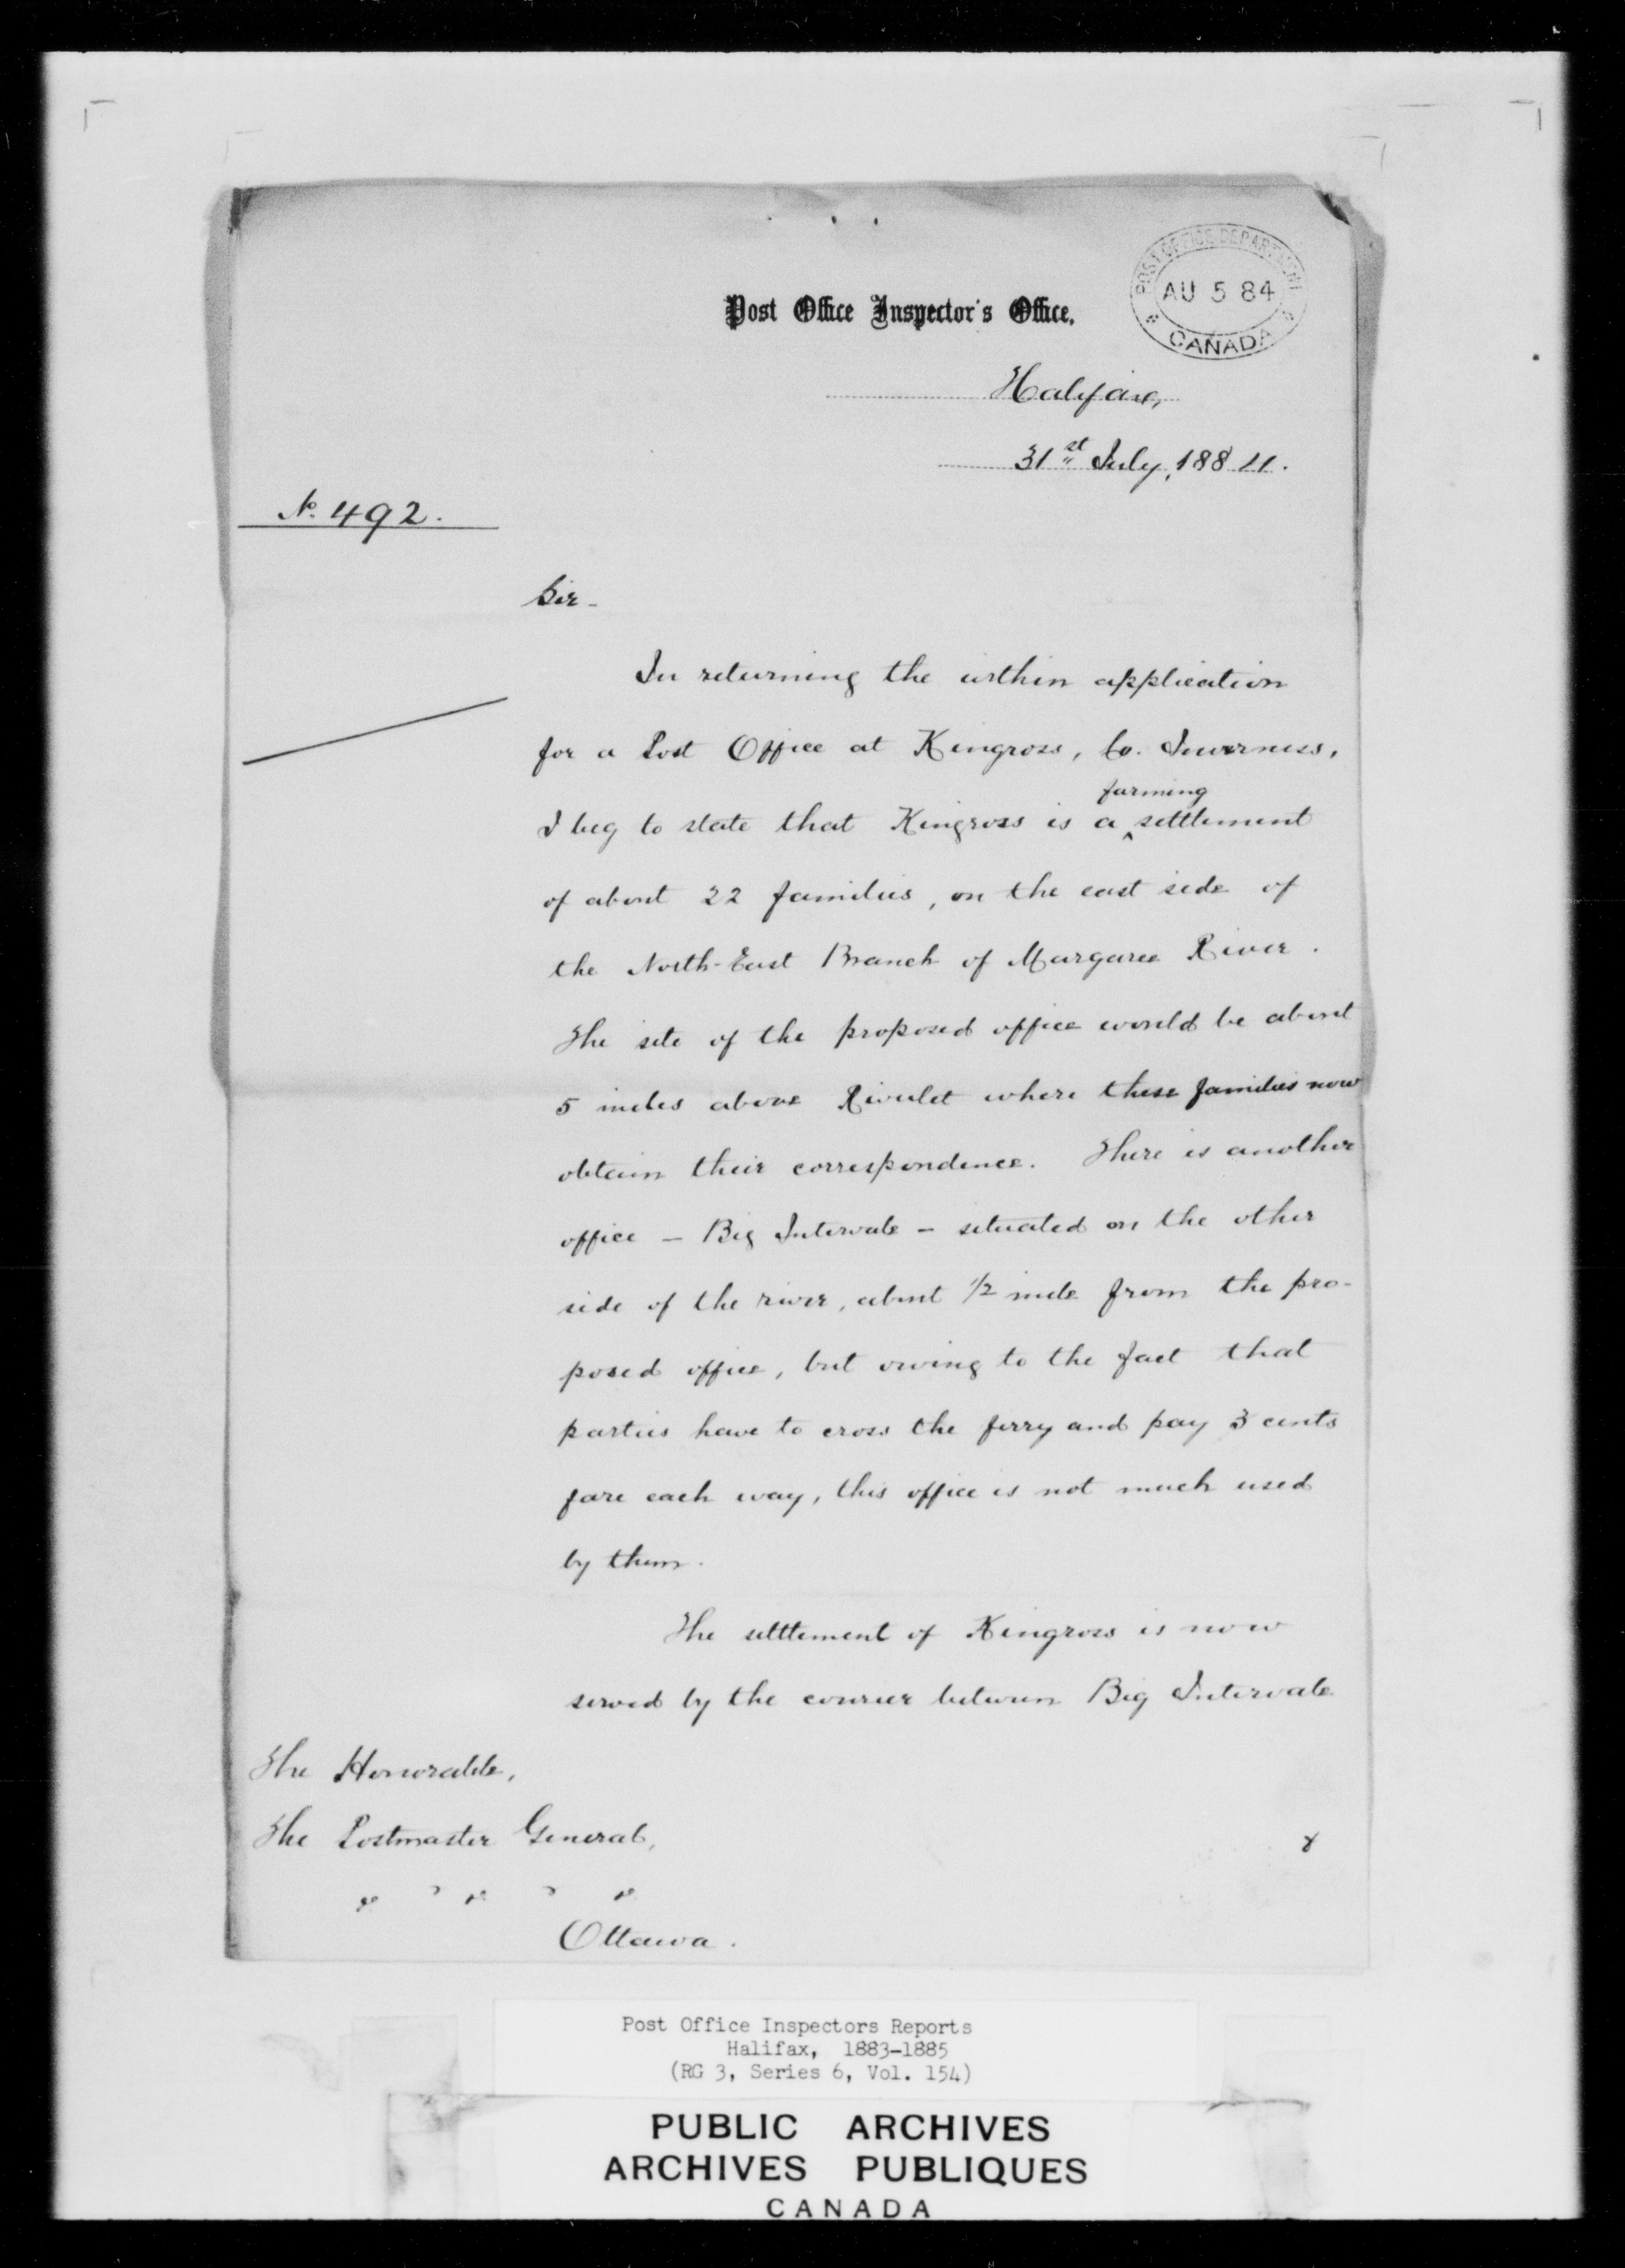 POST OFFICE DEPARTMENT
AU 5 84
CANADA
Post Office Inspector's Office.
Halifax,
31st July, 1884.
No. 492.
Sir-
In returning the within application
for a Post Office at Kingross, Co. Inverness,
farming
I beg to state that Kingross is a ^ settlement
of about 22 families, on the east side of
the North-East Branch of Margaree River.
The site of the proposed office would be about
5 miles above Rivulet where these families now
obtain their correspondence. There is another
office - Big Intervale - situated on the other
side of the river, about 1/2 mile from the pro-
posed office, but owing to the fact that
parties have to cross the ferry and pay 3 cents
fare each way, this office is not much used
by them.
The settlement of Kingross is now
served by the courier between Big Intervale
The Honorable,
The Postmaster General,
Ottawa.
Post Office Inspectors Reports
Halifax, 1883-1885
(RG 3, Series 6, Vol. 154)
PUBLIC ARCHIVES
ARCHIVES PUBLIQUES
CANADA